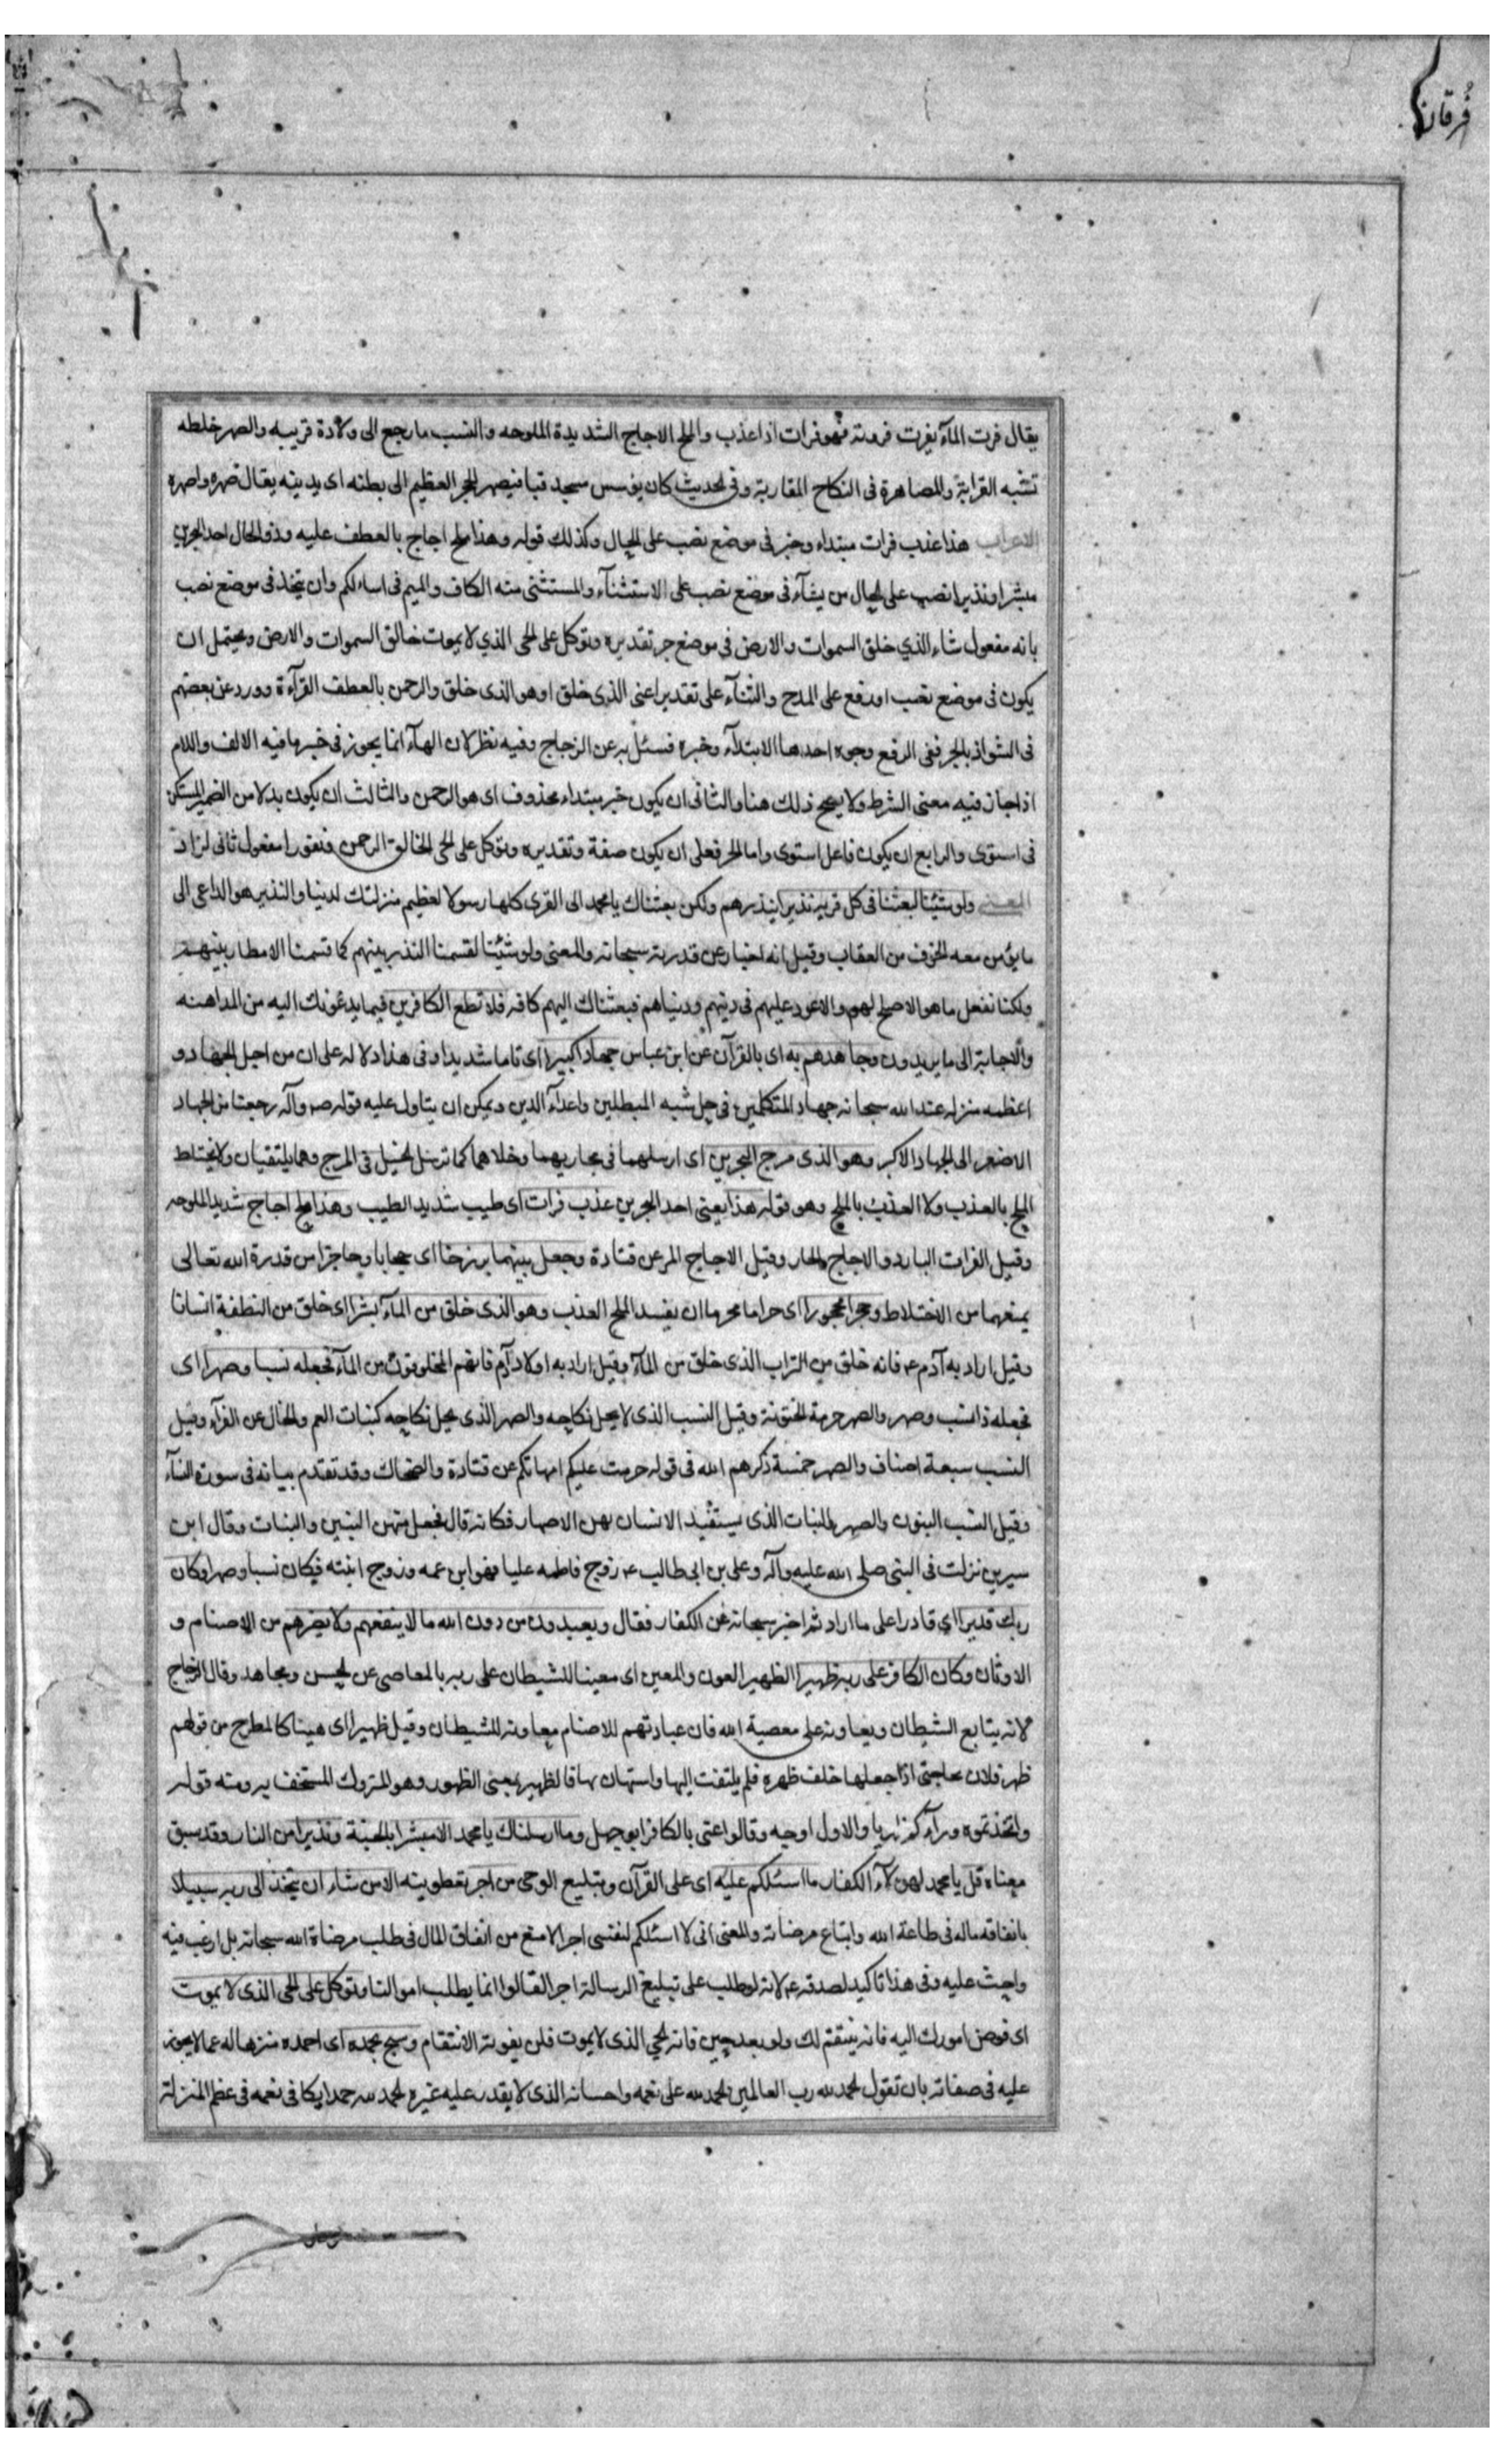 فُرقان
يقال فرت المآء يفرت فروتة فهو فرات اذا عذب والملح الاجاج الشديدة الملوحه والنسب ما رجع الى ولادة قريبه والصهر خلطه
تشبه القرابة والمصاهرة فى النكاح المقاربة وفى الحديث كان يؤسس مسجد قبا فيصهر الحجر العظيم الى بطنه اى يدينه يقال صهره واصهره
الاعراب هذا عذب فرات مبتداء وخبر فى موضع نصب على الحال وكذلك قوله وهذا ملح اجاج بالعطف عليه وذو الحال احد البحرين
مبشرا ونذيرا نصب على الحال من يشآء فى موضع نصب على الاستثنآء والمستثنى منه الكاف والميم فى اسالكم وان يتخذ فى موضع نصب
بانه مفعول شاء الذي خلق السموات والارض فى موضع جر تقديره وتوكل على الحى الذي لا يموت خالق السموات والارض ويحتمل ان
يكون فى موضع نصب او رفع على المدح والثنآء على تقدير اعنى الذى خلق او هو الذى خلق والرحمن بالعطف القرآءة وورد عن بعضهم
فى الشواذ بالجر ففى الرفع وجوه احدها الابتدآء وخبره فسئل به عن الزجاج وفيه نظر لان الهآء انما يجوز فى خبر ما فيه الالف واللام
اذا جاز فيه معنى الشرط ولا يصح ذلك هنا والثانى ان يكون خبر مبتداء محذوف اى هو الرحمن والثالث ان يكون بدلا من الضمير المستكن
فى استوى والرابع ان يكون فاعل استوى واما الجر فعلى ان يكون صفة وتقديره وتوكل على الحى الخالق الرحمن ونفورا مفعول ثانى لزاد
المعنى ولو شئنا لبعثنا فى كل قرية نذيرا ينذرهم ولكن بعثناك يا محمد الى القرى كلها رسولا لعظيم منزلتك لدينا والنذير هو الداعى الى
ما يؤمن معه الخوف من العقاب وقيل انه اخبار عن قدرته سبحانه والمعنى ولو شئنا لقسمنا النذر بينهم كما قسمنا الامطار بينهم
ولكنا نفعل ما هو الاصلح لهم والاعود عليهم فى دينهم ودنياهم فبعثناك اليهم كافه فلا تطع الكافرين فيما يدعونك اليه من المداهنه
والاجابة الى ما يريدون وجاهدهم به اى بالقرآن عن ابن عباس جهادا كبيرا اى تاما شديدا وفى هذا دلاله على ان من اجل الجهاد و
اعظمه منزله عند الله سبحانه جهاد المتكلمين فى حل شبه المبطلين واعدآء الدين ويمكن ان يتاول عليه قوله ص وآله رجعنا من الجهاد
الاصغر الى الجهاد الاكبر وهو الذى مرج البحرين اى ارسلهما فى مجاريهما وخلاهما كما ترسل الخيل فى المرج وهما يلتقيان ولا يختلط
الملح بالعذب ولا العذب بالملح وهو قوله هذا يعنى احد البحرين عذب فرات اى طيب شديد الطيب وهذا ملح اجاج شديد الملوحه
وقيل الفرات البارد والاجاج الحار وقيل الاجاج المر عن قتادة وجعل بينهما برزخا اى حجابا وحاجزا من قدرة الله تعالى
يمنعهما من الاختلاط وحجرا محجورا اى حراما محرما ان يفسد الملح العذب وهو الذى خلق من المآء بشرا اى خلق من النطفة انسانا
وقيل اراد به آدم ع فانه خلق من التراب الذى خلق من المآء وقيل اراد به اولاد آدم فانهم المخلوقون من المآء فجعله نسبا وصهرا اى
فجعله ذا نسب وصهر والصهر حرمة الختونة وقيل النسب الذى لا يحل نكاحه والصهر الذى يحل نكاحه كبنات العم والخال عن الفرآء وقيل
النسب سبعة اصناف والصهر خمسة ذكرهم الله فى قوله حرمت عليكم امهاتكم عن قتادة والضحاك وقد تقدم بيانه فى سورة النسآء
وقيل النسب البنون والصهر البنات الذى يستفيد الانسان بهن الاصهار فكانه قال فجعل منهن البنين والبنات وقال ابن
سيرين نزلت فى النبى صلى الله عليه وآله وعلى بن ابى طالب ع زوج فاطمه عليا فهو ابن عمه وزوج ابنته فيكان نسبا وصهرا وكان
ربك قديرا اي قادرا على ما اراد ثم اخبر سبحانه عن الكفار فقال ويعبدون من دون الله ما لا ينفعهم ولا يضرهم من الاصنام و
الاوثان وكان الكافر على ربه ظهيرا الظهير العون والمعين اى معينا للشيطان على ربه بالمعاصى عن الحسن ومجاهد وقال الزجاج
لانه يتابع الشيطان ويعاونه على معصية الله فان عبادتهم للاصنام معاونه للشيطان وقيل ظهيرا اى هينا كالمطرح من قولهم
ظهر فلان بحاجتى اذا جعلها خلف ظهره فلم يلتفت اليها واستهان بها فالظهير بمعنى الظهور وهو المتروك المستخف به ومنه قوله
واتخذتموه ورآءكم ظهريا والاول اوجه وقالوا عنى بالكافر ابو جهل وما ارسلناك يا محمد الا مبشرا بالجنة ونذيرا من النار وقد سبق
معناه قل يا محمد لهؤلآء الكفار ما اسئلكم عليه اى على القرآن وتبليغ الوحى من اجر تعطوينه الا من شاء ان يتخذ الى ربه سبيلا
بانفاقه ماله فى طاعة الله وابتاع مرضاته والمعنى انى لا اسئلكم لنفسى اجرا لا منع من انفاق المال فى طلب مرضاة الله سبحانه بل ارغب فيه
واحث عليه وفى هذا تاكيد لصدقه ع لانه لو طلب على تبليغ الرسالة اجرا لقالوا انما يطلب اموالنا وتوكل على الحى الذى لا يموت
اى فوض امورك اليه فانه ينتقم لك ولو بعد حين فانه الحي الذى لا يموت فلن يفوته الانتقام وسبح بحمده اى احمده منزها له عما لا يجوز
عليه فى صفاته بان تقول الحمد لله رب العالمين الحمد لله على نعمه واحسانه الذى لا يقدر عليه غيره الحمد لله حمدا يكافى نعمه فى عظم المنزلة